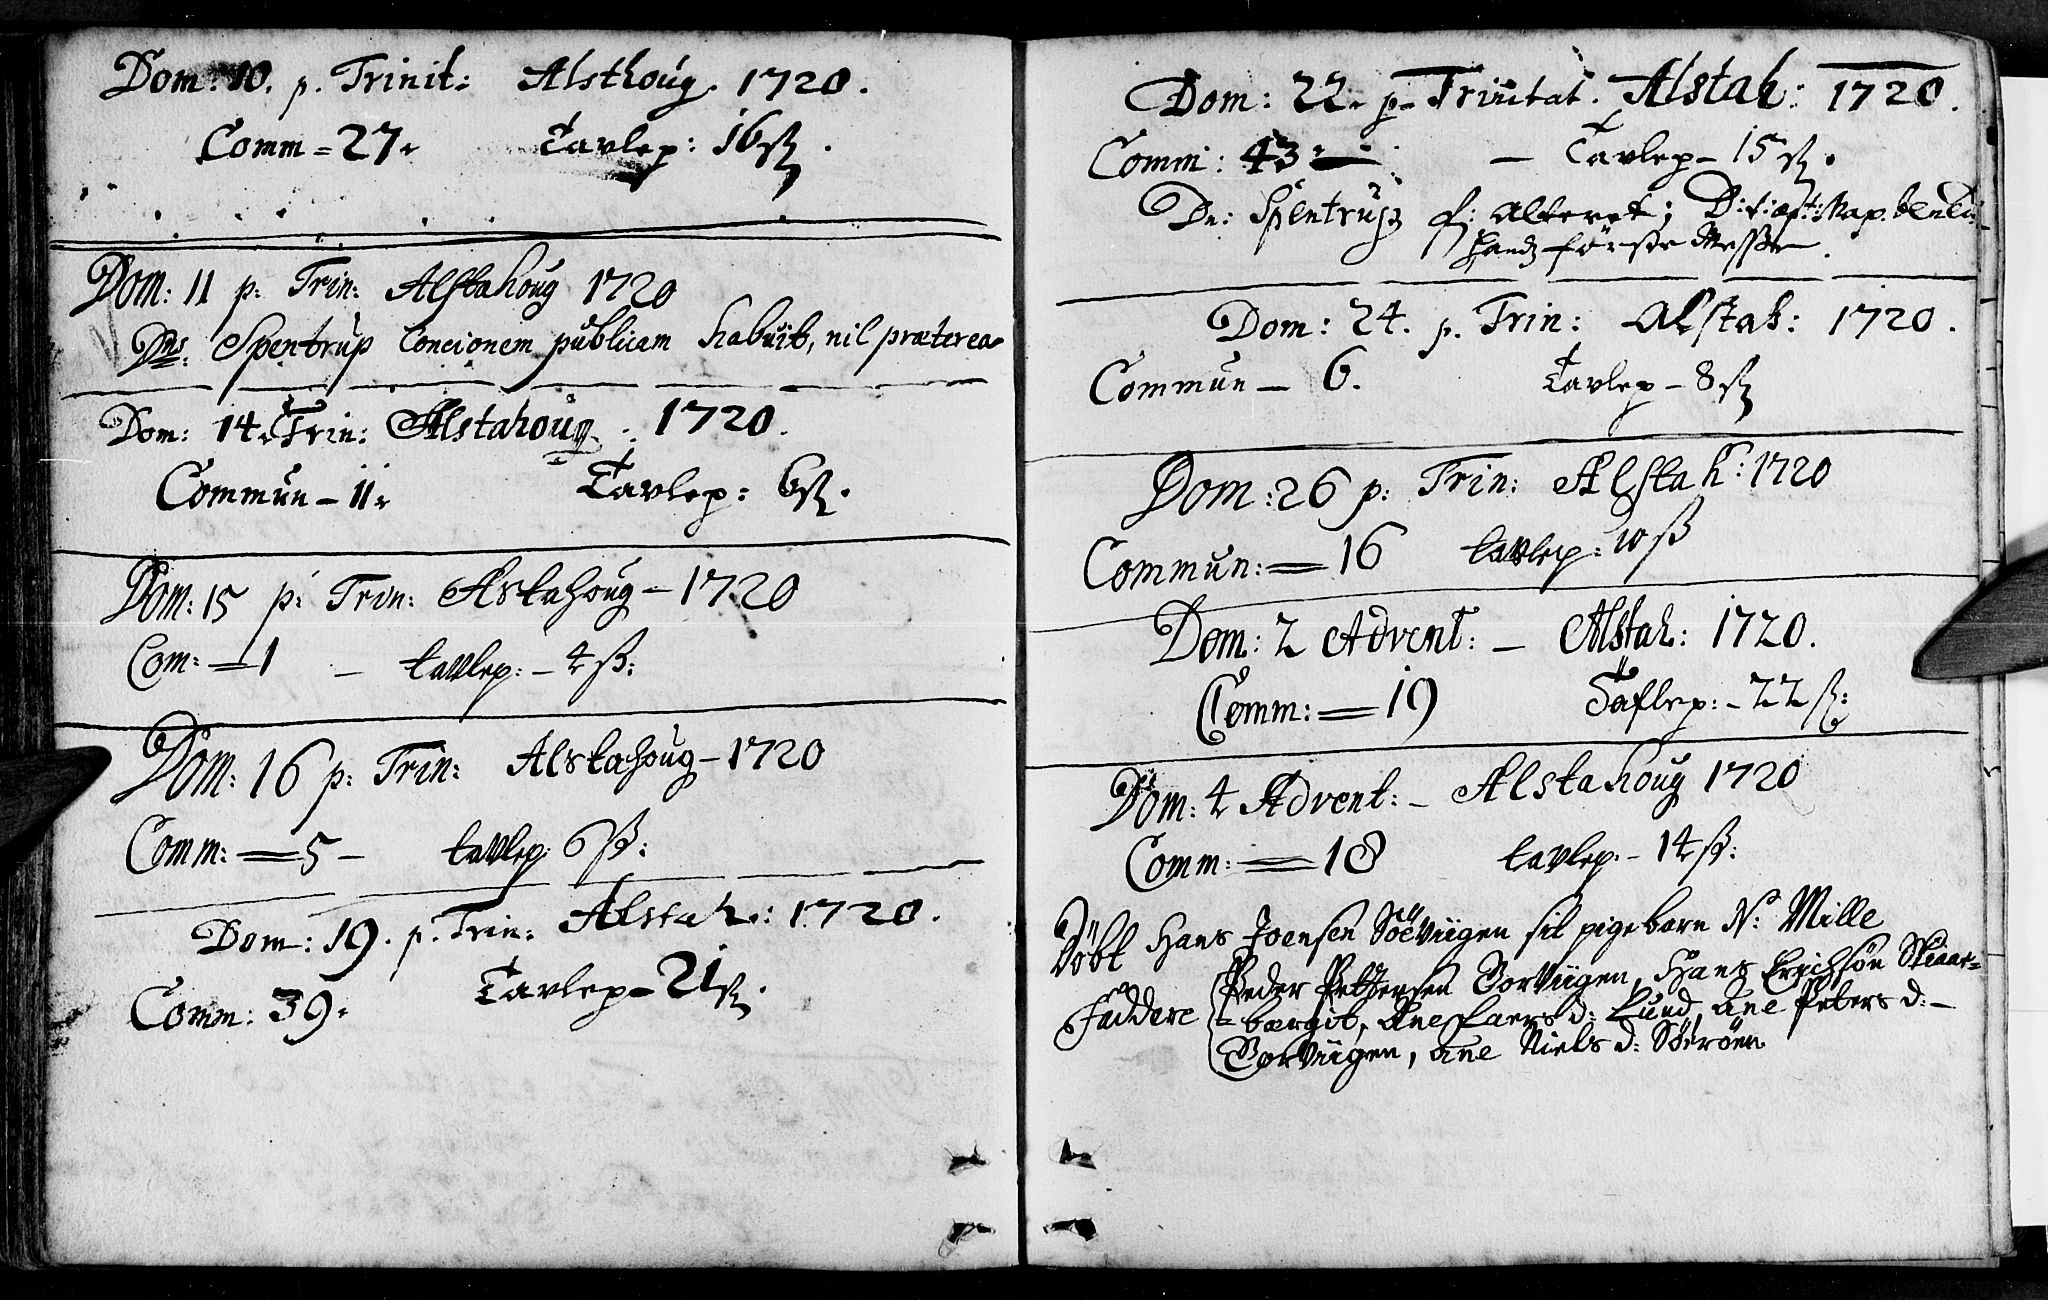 Dom: 10. p. Trinit: Alsthoug. 1720.
Comm = 27.
Tavlep: 16 ß.
Dom: 11 p: Trin: Alstahoug 1720
Dns: Spentrup Concionem publicam habuit, nil præterea
Dom: 14. Trin: Alstahoug. 1720.
Commun – 11.
Tavlep: 6 ß.
Dom: 15 p: Trin: Alstahoug – 1720
Com: = 1 – tavlep: – 4 ß:
Dom: 16 p: Trin: Alstahoug – 1720
Comm: = 5 – tavlep: 6 ß:
Dom: 19. p. Trin: Alstah: 1720.
Comm: 39.
Tavlep – 21 ß.
Dom: 22. p. Trinitat. Alstah: 1720.
Comm: 43 –
– Tavlep – 15 ß.
Dn: Spentrup
hands første Messe.
Dom: 24. p. Trin: Alstah: 1720.
Commun – 6.
Tavlep – 8 ß
Dom: 26 p: Trin: Alstah: 1720
Commun: = 16 tavlep: 10 ß
Dom: 2 Advent: – Alstah: 1720.
Comm: = 19 Taflep: – 22 ß:
Dom: 4 Advent: – Alstahoug 1720
Comm: = 18 tavlep: – 14 ß:
Döbt Hans Joensen Söeviigen sit pigebarn N: Mille
Faddere Peder Pettersen Borviigen, Hans Erichsön Skiaar=
= bærgit, Ane Laers d: Lund, Ane Peters d: –
Borviigen, Ane Niels d: Söeröen